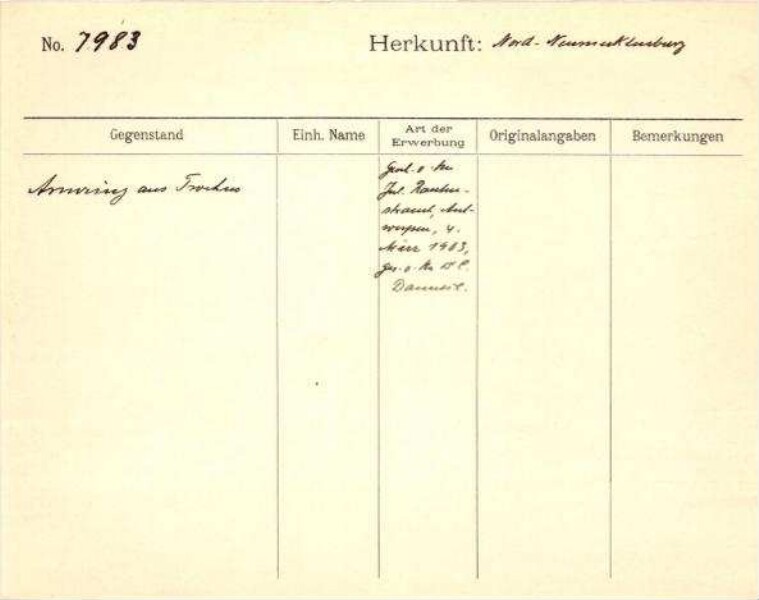 No. 7983
Herkunft: Nord-Neumecklenburg
Gegenstand
Einh. Name
Art der Erwerbung
Originalangaben
Bemerkungen
Armring aus Trochus
Jul. Rauten-
strauch, Ant-
werpen, 4.
März 1903,
ges. v. Hn Dr C.
Danneil.